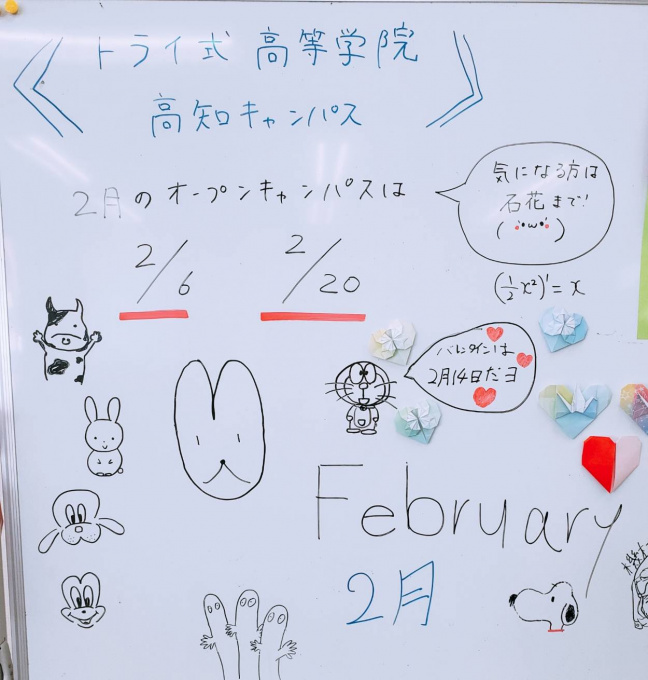 トライ式 高等学院
高知キャンパス
2月のオープンキャンパスは
気になる方は
石花まで!
(•ω•)
2/6
2/20
(½x²)'=x
バレンタインは
2月14日だヨ
February
2月